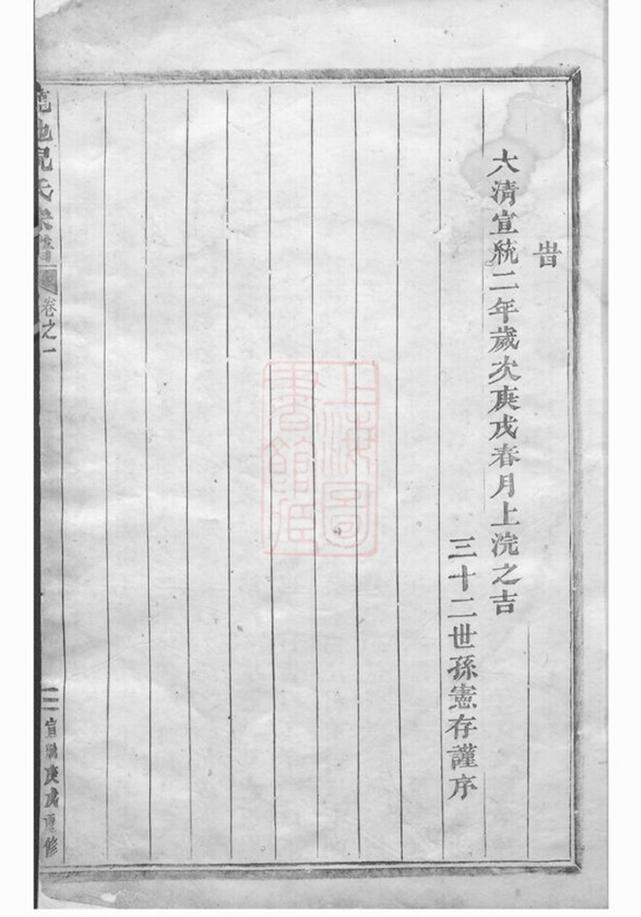 旹
大清宣統二年歲次庚戌春月上浣之吉
三十二世孫憲存謹序
氏宗譜
卷之一
宣統庚戌重修
上海圖
書館藏